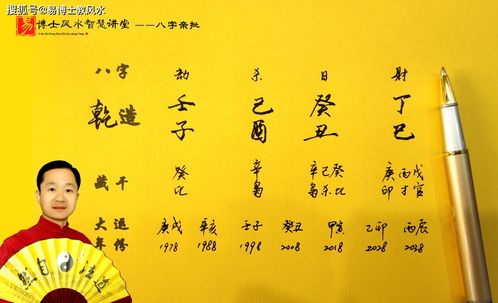 搜狐号@易博士教风水
易 博士风水智慧讲堂 ——八字亲批
Yi Bo Shi Feng Shui Zhi Hui Jiang Tang
八字 劫 杀 日 财
乾造 壬 己 癸 丁
子 酉 丑 巳
藏干 癸 辛 辛己癸 庚丙戊
比 枭 枭杀比 印才官
大运 庚戌 辛亥 壬子 癸丑 甲寅 乙卯 丙辰
年份 1978 1988 1998 2008 2018 2028 2038
然自